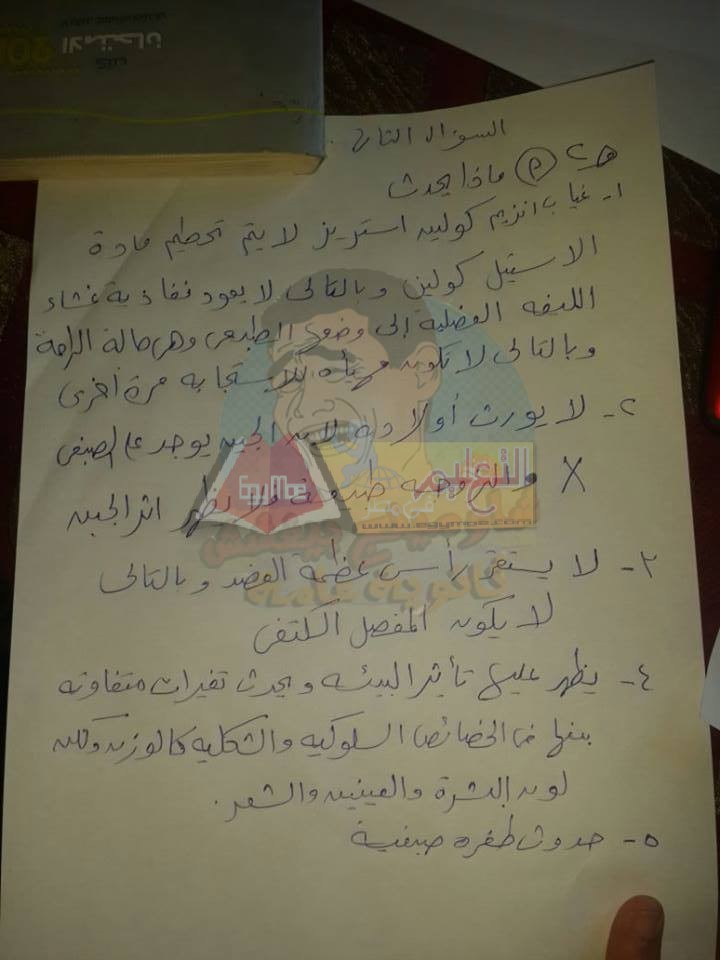 كتاب
الامتحان
السؤال الثانى
جـ2 (م) ماذا يحدث
1- غياب انزيم كولين استريز لا يتم تحطيم مادة
الاستيل كولين وبالتالى لا يعود نفاذية غشاء
الليفه العضلية إلى وضعها الطبيعى وهى حالة الراحة
وبالتالى لا تكون مهيأة للاستجابه مرة أخرى
2- لا يورث أولاده لان الجين يوجد على الصبغى
X والزوجه طبيعية فلا يظهر اثر الجين
3- لا يستقر رأس عظمة العضد وبالتالى
لا يكون المفصل الكتفى
4- يظهر عليها تأثير البيئه ويحدث تغيرات متفاوته
بينها فى الخصائص السلوكيه والشكليه كالوزن ولكن
لون البشرة والعينين والشعر.
5- حدوث طفره صبغية
التعليم
www.egymoe.com